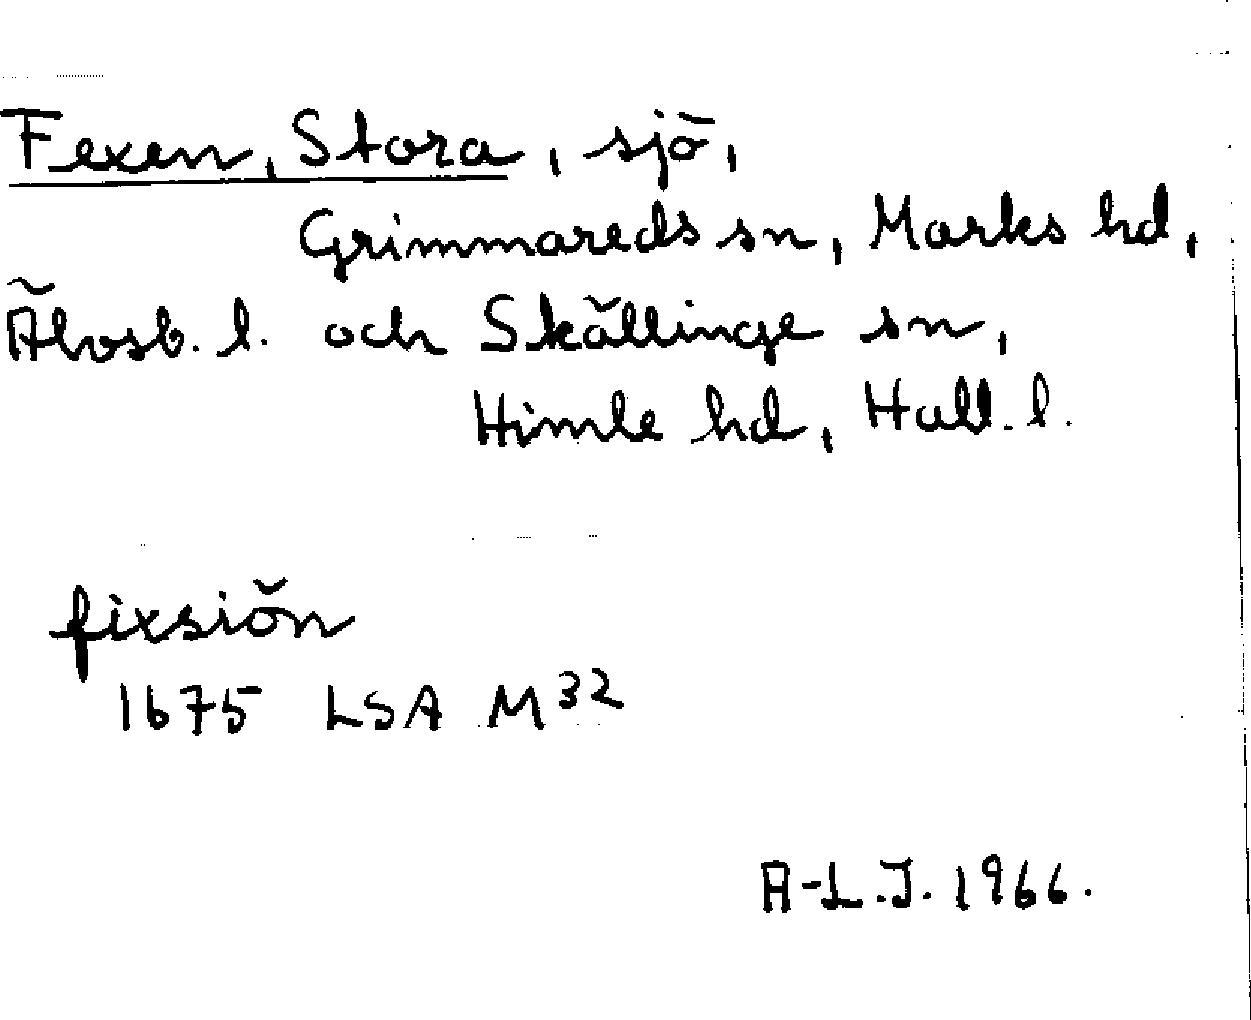 Fexen, Stora, sjö,
Grimmareds sn, Marks hd,
Älvsb. l. och Skällinge sn,
Himle hd, Hall. l.
fixsiön
1675 LSA M32
A-L.J. 1966.